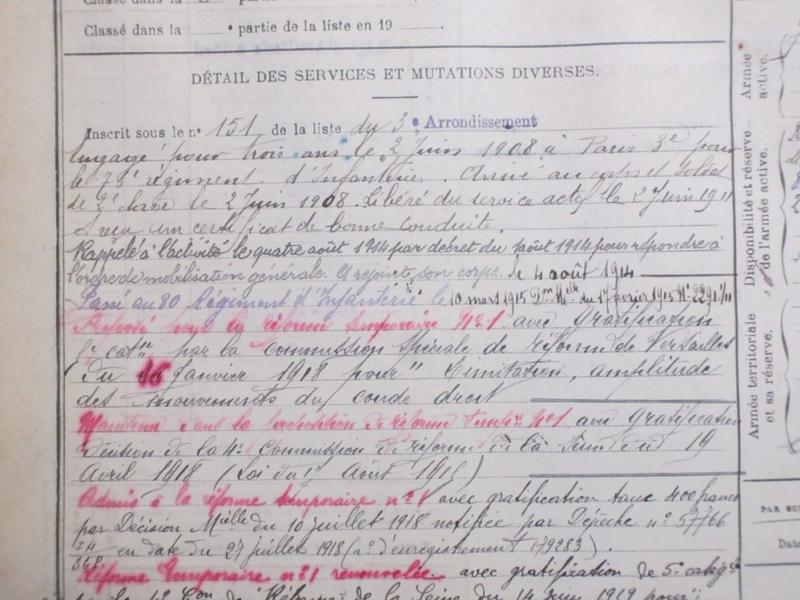 Classé dans la partie de la liste en 19
DÉTAIL DES SERVICES ET MUTATIONS DIVERSES.
Inscrit sous le n° 151 de la liste du 3e Arrondissement
Engagé pour trois ans le 2 Juin 1908 à Paris 3e pour
le 76e régiment d'Infanterie. Arrivé au corps et soldat
de 2e classe le 2 Juin 1908. Libéré du service actif le 2 Juin 1911
a reçu un certificat de bonne conduite.
Rappelé à l'activité le quatre août 1914 par décret du 1 août 1914 pour répondre à
l'ordre de mobilisation générale. A rejoint son corps le 4 août 1914
Passé au 80 Régiment d'Infanterie le 10 mars 1915 Don Mlle du 17 février 1915 N° 2291
la réforme temporaire No 1 avec gratification
par la commission spéciale de réforme de Versailles
du 16 Janvier 1918 pour " limitation, amplitude
des mouvements du coude droit
Maintenu dans la de réforme tempre No 1 avec gratification
décision de la 4e Commission de réforme de la Seine du 19
Avril 1918 (Loi du 17 Août 1915)
Admis à la réforme temporaire no 1 avec gratification taux 400 francs
par Décision Mielle du 10 juillet 1918 notifiée par Dépêche no 57766
en date du 27 juillet 1918 (no d'enregistrement 179283).
Réforme temporaire no 1 renouvelée avec gratification de 5e catégie
de Réforme de la Seine du 14 juin 1919 pour:
Armée active.
Disponibilité et réserve de l'armée active.
Armée territoriale et sa réserve.